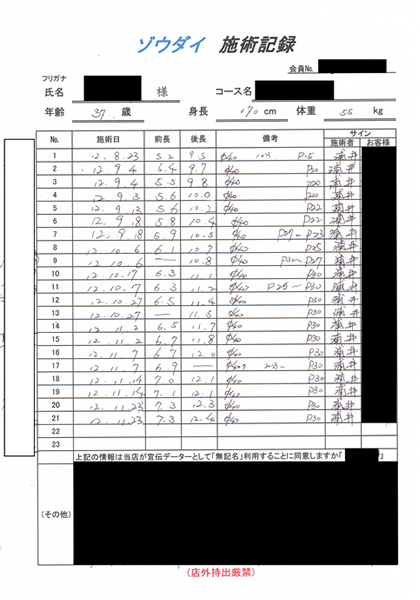 ゾウダイ 施術記録
会員No.
フリガナ
氏名 様 コース名
年齢 37 歳 身長 170 cm 体重 55 kg
No. 施術日 前長 後長 備考 サイン
施術者 お客様
1 12.8.23 5.2 9.5 φ40 P15 浦井
2 12.9.4 5.4 9.7 φ40 P20 浦井
3 12.9.4 5.5 9.8 φ40 P20 浦井
4 12.9.13 5.6 10.0 φ40 P20 浦井
5 12.9.13 5.6 10.2 φ40 P22 浦井
6 12.9.18 5.8 10.4 φ40 P22 浦井
7 12.9.18 5.9 10.5 φ40 P27〜P23 浦井
8 12.10.6 6.1 10.7 φ40 P25 浦井
9 12.10.6 — 10.8 φ40 P30〜P27 浦井
10 12.10.17 6.3 11.1 φ40 P30 浦井
11 12.10.17 6.3 11.2 φ40 P25〜P30 浦井
12 12.10.27 6.5 11.4 φ40 P30 浦井
13 12.10.27 — 11.5 φ40 P30 浦井
14 12.11.2 6.5 11.7 φ40 P30 浦井
15 12.11.2 6.7 11.8 φ40 P30 浦井
16 12.11.7 6.7 12.0 φ40 P30 浦井
17 12.11.7 6.9 — P30 浦井
18 12.11.14 7.0 12.1 φ40 P30 浦井
19 12.11.14 7.1 12.1 φ40 P30 浦井
20 12.11.23 7.3 12.3 φ40 P30 浦井
21 12.11.23 7.3 12.4 φ40 P30 浦井
22
23
上記の情報は当店が宣伝データーとして「無記名」利用することに同意しますか「 」
(その他)
(店外持出厳禁)